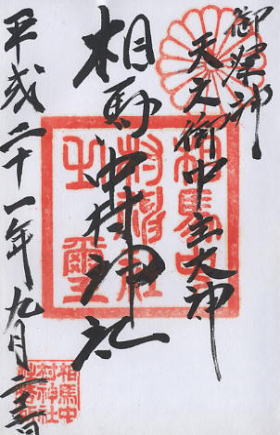 御祭神
天之御中主大神
相馬中村神社
平成二十一年九月二十二日
相馬中村神社之璽
相馬中村神社社務所